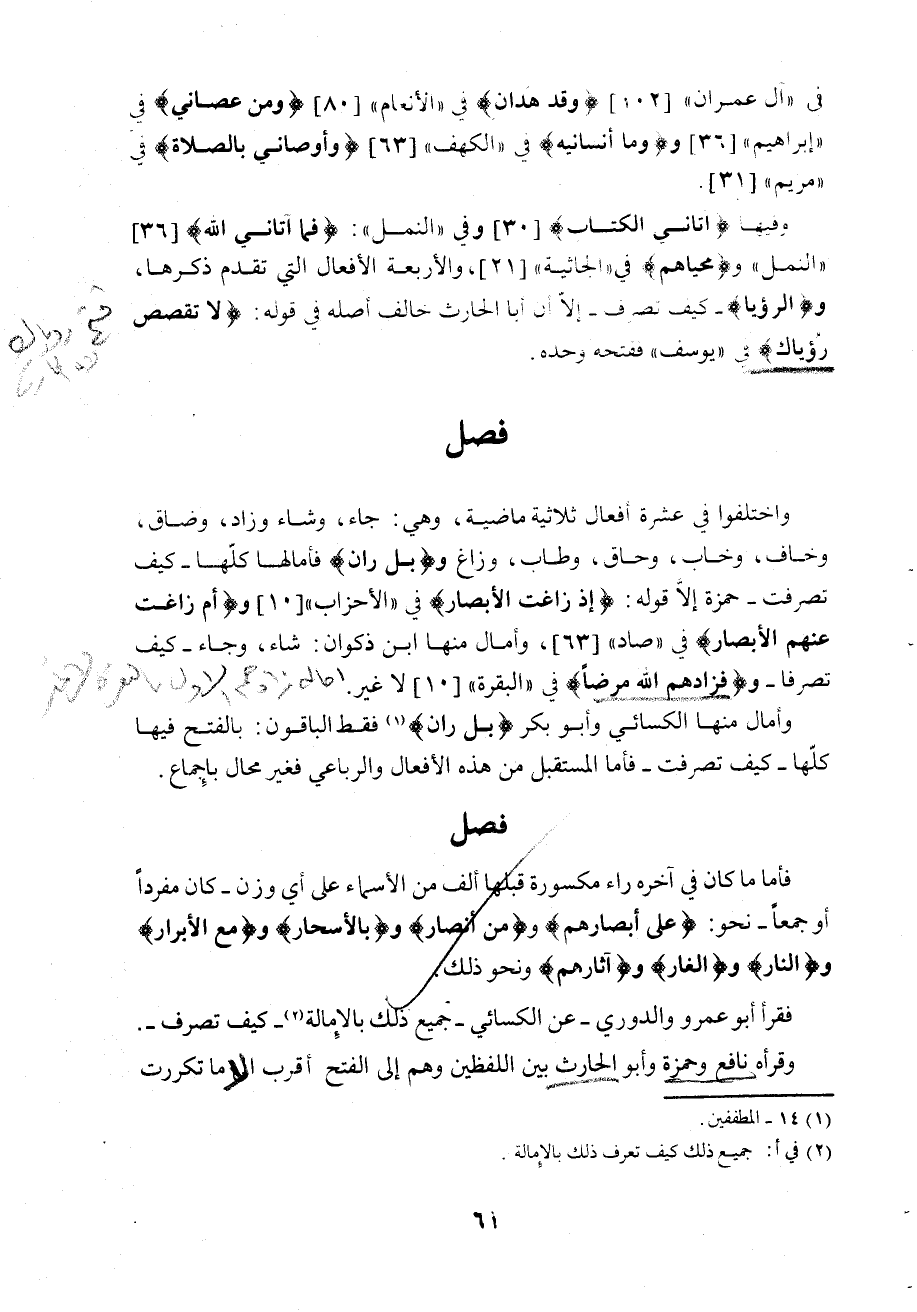 في «آل عمران» [١٠٢] ﴿وقد هدان﴾ في «الأنعام» [٨٠] ﴿ومن عصاني﴾ في
«إبراهيم» [٣٦] و﴿وما أنسانيه﴾ في «الكهف» [٦٣] ﴿وأوصاني بالصلاة﴾ في
«مريم» [٣١].
وفيها ﴿اتاني الكتاب﴾ [٣٠] وفي «النمل»: ﴿فما آتاني الله﴾ [٣٦]
«النمل» و﴿محياهم﴾ في«الجاثية» [٢١]، والأربعة الأفعال التي تقدم ذكرها،
و﴿الرؤيا﴾ ـ كيف تصرف ـ إلاّ أن أبا الحارث خالف أصله في قوله: ﴿لا تقصص
رُؤياك﴾ في «يوسف» ففتحه وحده.
فصل
واختلفوا في عشرة أفعال ثلاثية ماضية، وهي: جاء، وشاء وزاد، وضاق،
وخاف، وخاب، وحاق، وطاب، وزاغ و﴿بل ران﴾ فأمالها كلّها ـ كيف
تصرفت ـ حمزة إلاَّ قوله: ﴿إذ زاغت الأبصار﴾ في «الأحزاب» [١٠] و﴿أم زاغت
عنهم الأبصار﴾ في «صاد» [٦٣]، وأمال منها ابن ذكوان: شاء، وجاء ـ كيف
تصرفا ـ و﴿فزادهم الله مرضاً﴾ في «البقرة» [١٠] لا غير.
وأمال منها الكسائي وأبو بكر ﴿بل ران﴾(١) فقط الباقون: بالفتح فيها
كلّها ـ كيف تصرفت ـ فأما المستقبل من هذه الأفعال والرباعي فغير محال بإجماع.
فصل
فأما ما كان في آخره راء مكسورة قبلها ألف من الأسماء على أي وزن ـ كان مفرداً
أو جمعاً ـ نحو: ﴿على أبصارهم﴾ و﴿من أنصار﴾ و﴿بالأسحار﴾ و﴿مع الأبرار﴾
و﴿النار﴾ و﴿الغار﴾ و﴿آثارهم﴾ ونحو ذلك.
فقرأ أبو عمرو والدوري ـ عن الكسائي ـ جميع ذلك بالإمالة(٢) ـ كيف تصرف ـ.
وقرأه نافع وحمزة وأبو الحارث بين اللفظين وهم إلى الفتح أقرب الا ما تكررت
(١) ١٤ ـ المطففين.
(٢) في أ: جميع ذلك كيف تعرف ذلك بالإمالة.
٦١